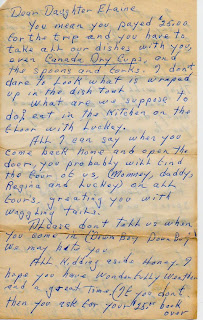 Dear Daughter Elaine
You mean you payed $25.00
for the trip and you have to
take all our dishes with you,
even Canada Dry Cups, and
the spoons and forks. I don't
dare to look what you wraped
up in the dish towl
What are we suppose to
do, eat in the Kitchen on the
floor with Luckey.
All I can say when you
come back home and open the
door, you probably will find
the four of us, (Mommey, daddy,
Regina and Luckey) on all
fours, greating you with
waggling tails.
Please don't tell us when
you come in (Down Boy Down Boy)
We may bate you.
All Kidding aside Honey. I
hope you have Wonderfully Weather
and a great time. (If you don't
then you ask for your "25" back
over